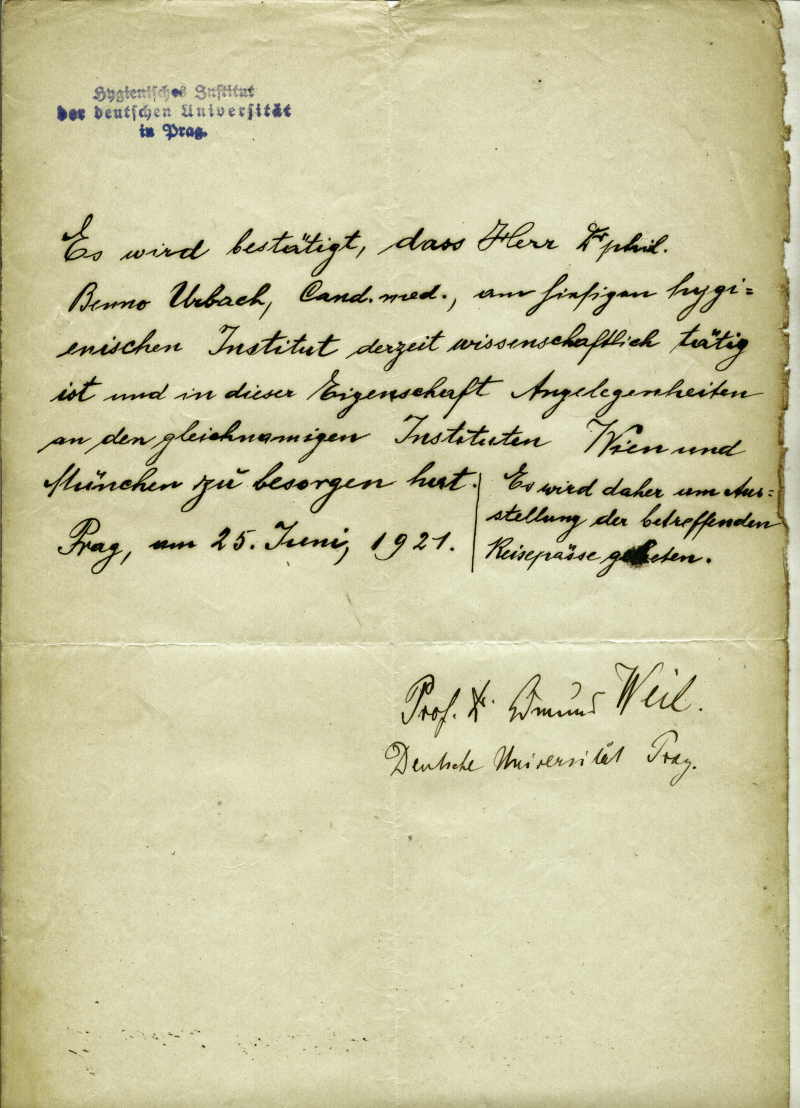 Hygienisches Institut
der deutschen Universität
in Prag.
Es wird bestätigt, dass Herr Dr phil.
Benno Urbach, Cand. med., am hiesigen hygi=
enischen Institut derzeit wissenschaftlich tätig
ist und in dieser Eigenschaft Angelegenheiten
an den gleichnamigen Instituten Wien und
München zu besorgen hat.
Prag, am 25. Juni, 1921.
Es wird daher um Aus=
stellung der betreffenden
Reisepässe gebeten.
Prof. Dr. Edmund Weil.
Deutsche Universität Prag.